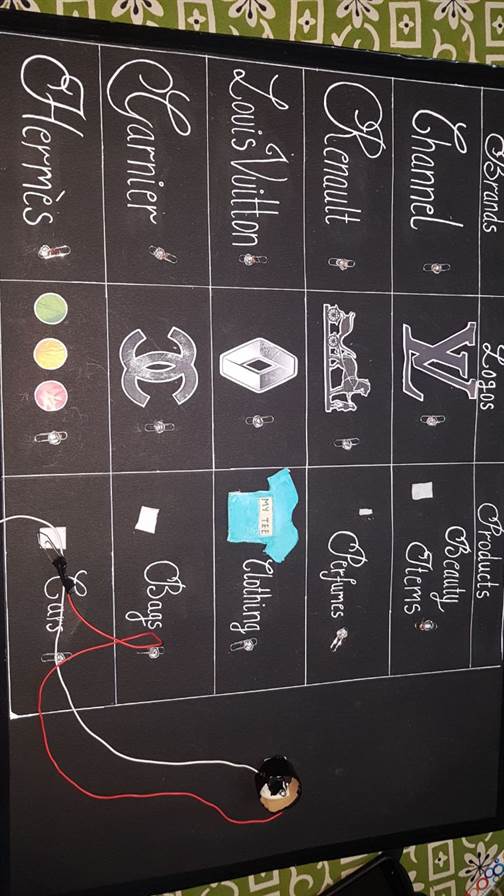 Brands Logos Products
Channel Beauty
Items
Renault Perfumes
Louis Vuitton MY TEE Clothing
Garnier Bags
Hermès Cars